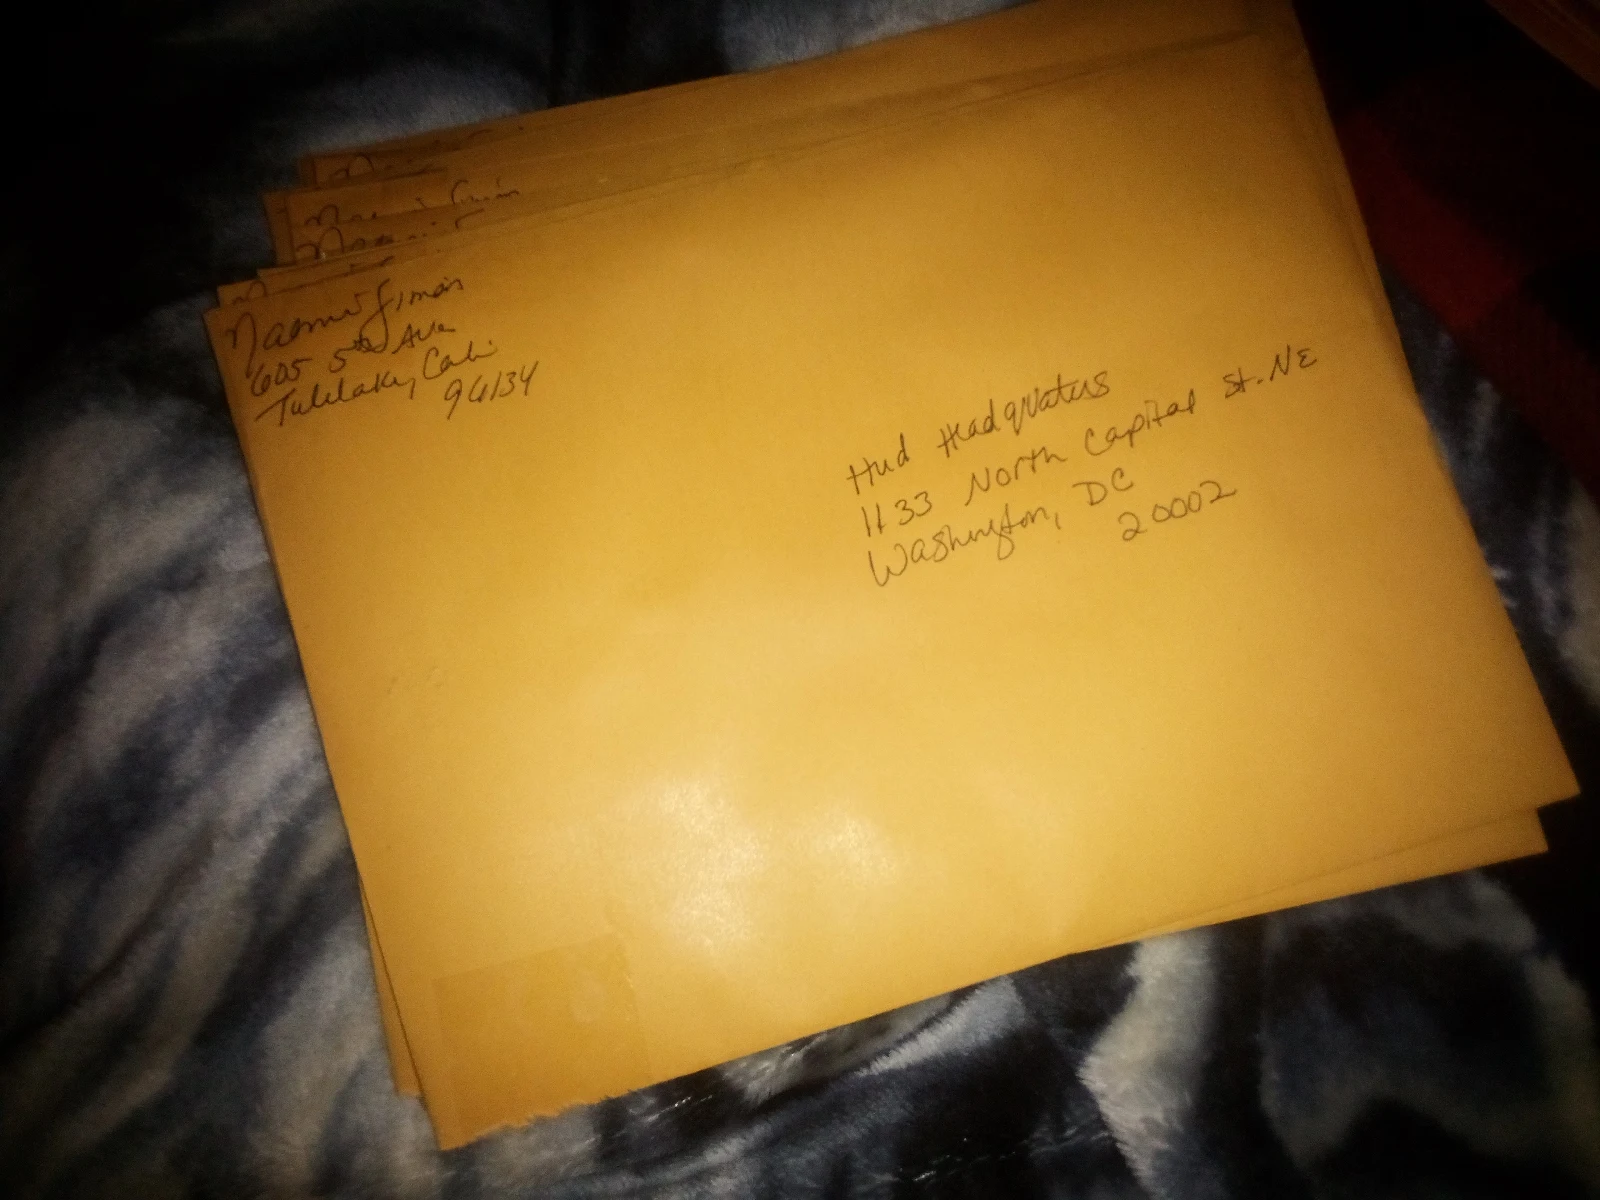 Naomi
Naomi Simán
Naomi S
Naomi Simán
605 5th Ave
Tulelake, Cali
96134
Hud Headquaters
1133 North Capital St. NE
Washington, DC
20002